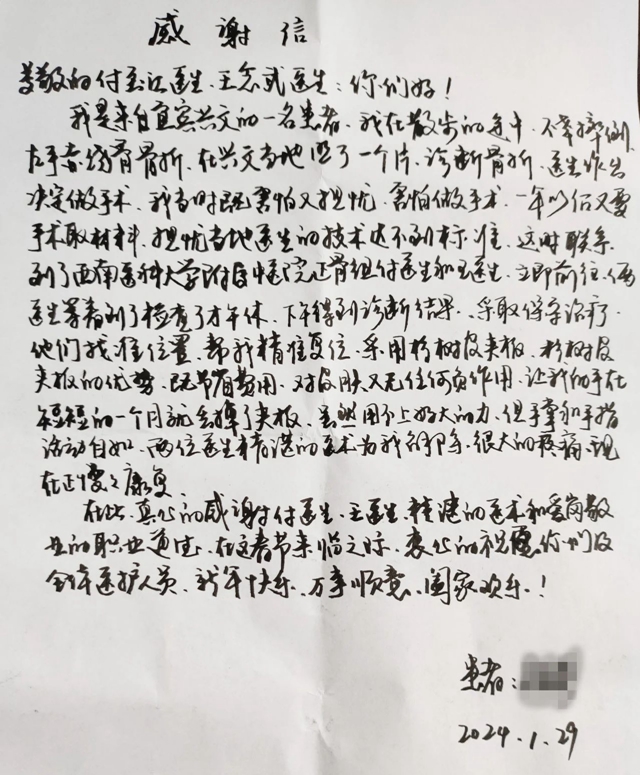 感谢信
尊敬的付玉江医生、王念武医生:你们好!
我是来自宜宾兴文的一名患者、我在散步的途中、不幸摔倒、
左手桡骨骨折、在兴文当地照了一个片、诊断骨折、医生作出
决定做手术、我当时既害怕又担忧、害怕做手术、一年以后又要
手术取材料、担忧当地医生的技术达不到标准、这时联系
到了西南医科大学附属中医院正骨组付医生和王医生、立即前往、俩
医生等着到了检查了才午休、下午得到诊断结果、采取保守治疗、
他们找准位置、帮我精准复位、采用杉树皮夹板、杉树皮
夹板的优势、既节省费用、对皮肤又无任何负作用、让我的手在
短短的一个月就去掉了夹板、虽然用不上好大的力、但手掌和手指
活动自如、两位医生精湛的医术为我解除了很大的疼痛、现
在正慢慢康复、
在此、真心的感谢付医生、王医生、精湛的医术和爱岗敬
业的职业道德、在这春节来临之际、衷心的祝愿你们及
全体医护人员、新年快乐、万事顺意、阖家欢乐、!
患者:
2024.1.29